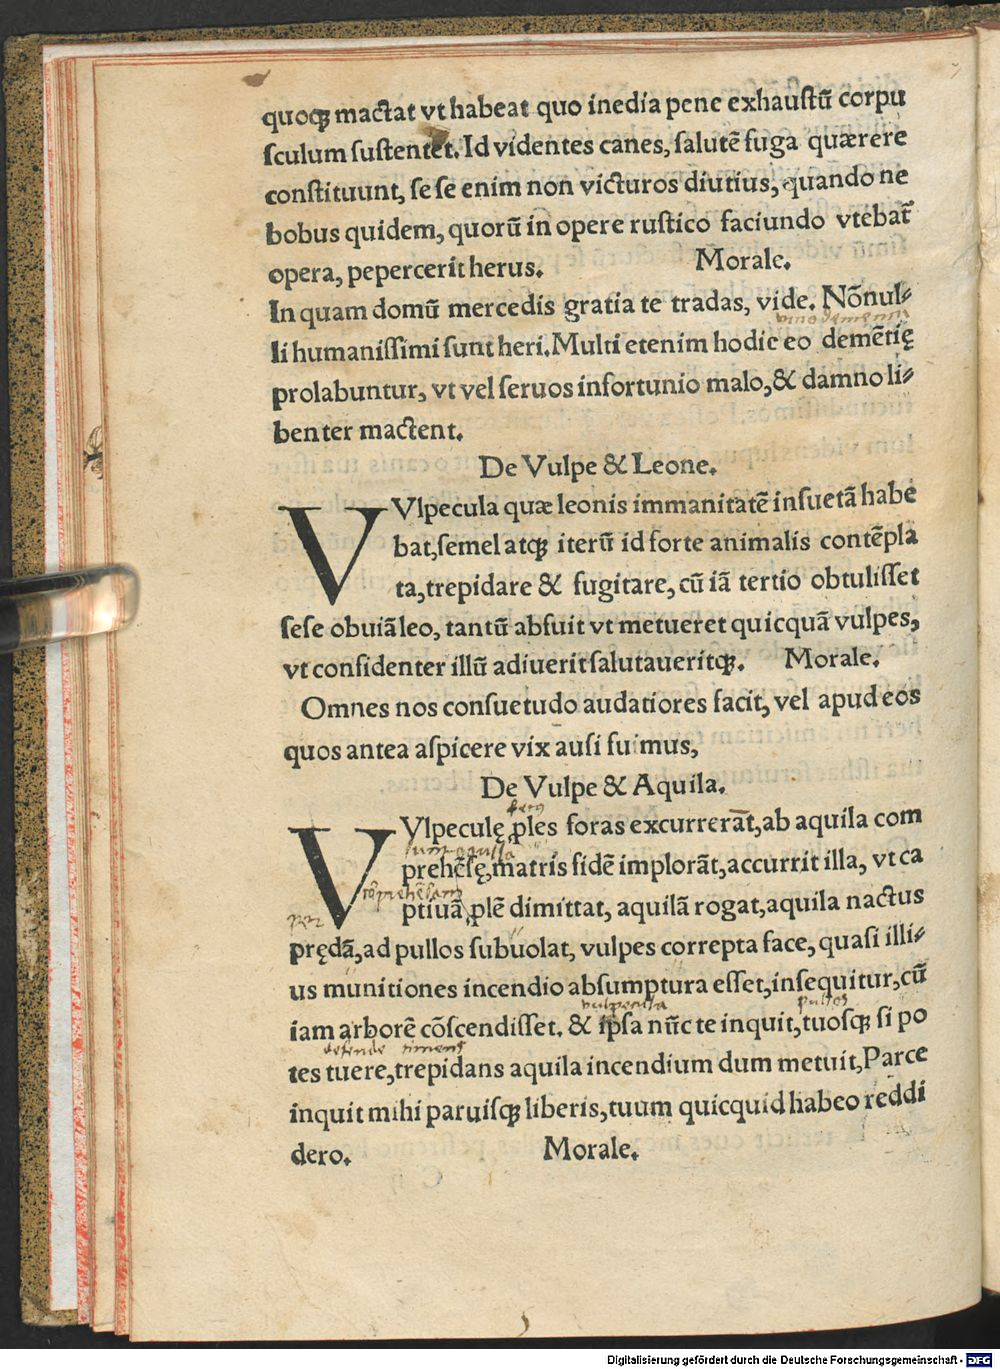 quoqꝫ mactat vt habeat quo inedia pene exhaustū corpu
sculum sustentet. Id videntes canes, salutē fuga quærere
constituunt, se se enim non victuros diutius, quando ne
bobus quidem, quorū in opere rustico faciundo vtebat᷑
opera, pepercerit herus. Morale.
In quam domū mercedis gratia te tradas, vide. Nōnul⸗
li humanissimi sunt heri. Multi etenim hodie eo demētię
prolabuntur, vt vel seruos infortunio malo, & damno li⸗
benter mactent.
De Vulpe & Leone.
VUlpecula quæ leonis immanitatē insuetā habe
bat, semel atqꝫ iterū id forte animalis contēpla
ta, trepidare & fugitare, cū iā tertio obtulisset
sese obuiā leo, tantū absuit vt metueret quicquā vulpes,
vt considenter illū adiuerit salutaueritqꝫ. Morale.
Omnes nos consuetudo audatiores facit, vel apud eos
quos antea aspicere vix ausi fuimus,
De Vulpe & Aquila.
VUlpeculę ꝓles foras excurrerāt, ab aquila com
prehēsę, matris fidē implorāt, accurrit illa, vt ca
comprehēsam
ptiuā ꝓlē dimittat, aquilā rogat, aquila nactus
prędā, ad pullos subuolat, vulpes correpta face, quasi illi⸗
us munitiones incendio absumptura esset, insequitur, cū
vulpecula pullos
iam arborē cōscendisset. & ipsa nūc te inquit, tuosqꝫ si po
defende timens
tes tuere, trepidans aquila incendium dum metuit, Parce
inquit mihi paruisqꝫ liberis, tuum quicquid habeo reddi
dero. Morale.
Digitalisierung gefördert durch die Deutsche Forschungsgemeinschaft - DFG